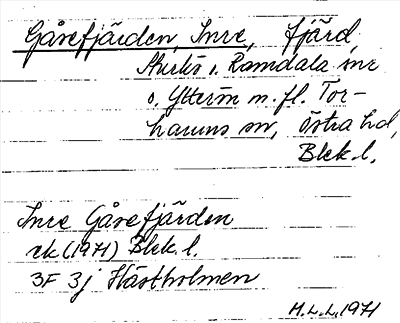 Gåsefjärden, Inre, fjärd,
Skirlö i. Ramdala snr
o. Ytterön m. fl. Tor-
hamns sn, Östra hd,
Blek. l.
Inre Gåsefjärden
ek (1971) Blek. l.
3F 3j Hästholmen
H.L.L. 1971